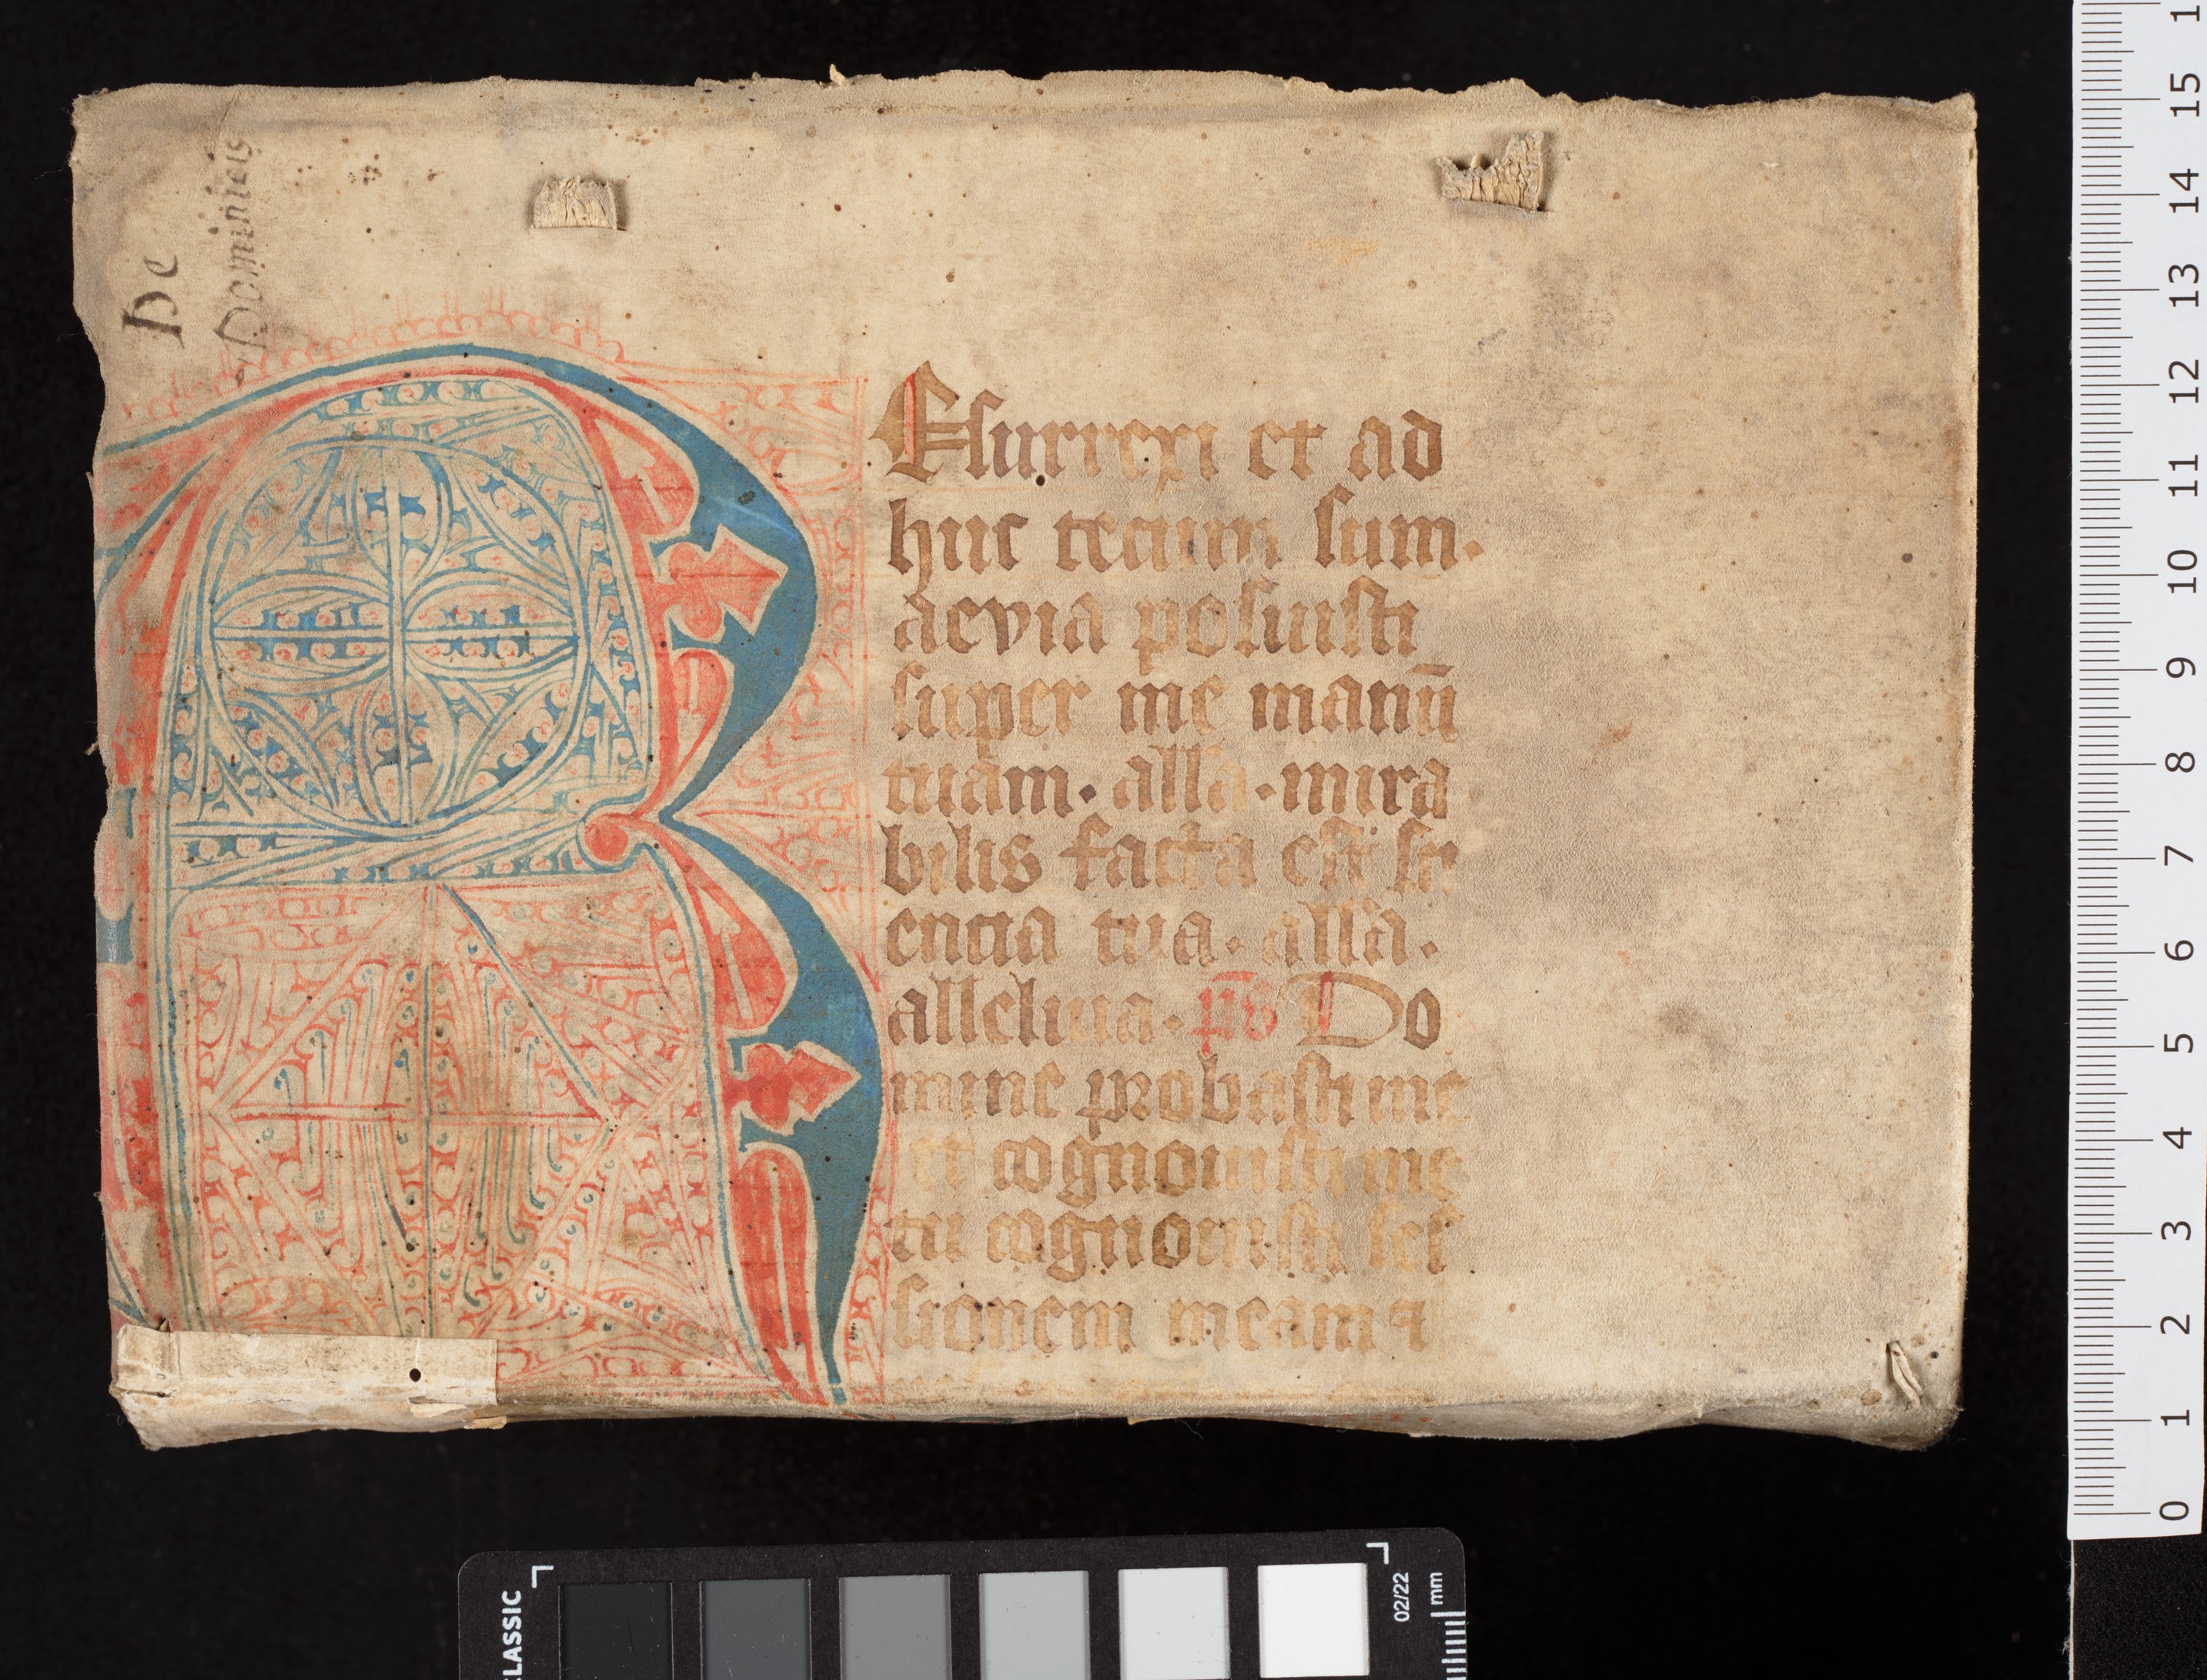 De
Dominicis
REsurrexi et ad
huc tecum sum·
aevia posuisti
super me manū
tuam· alla·mira
bilis facta est sci
encia tua· alla·
alleluia· ps̄ Do
mine probasti me
et cognouisti me
tu cognouisti ses
sionem meam ⁊
0 1 2 3 4 5 6 7 8 9 10 11 12 13 14 15 1
CLASSIC
02/22
mm